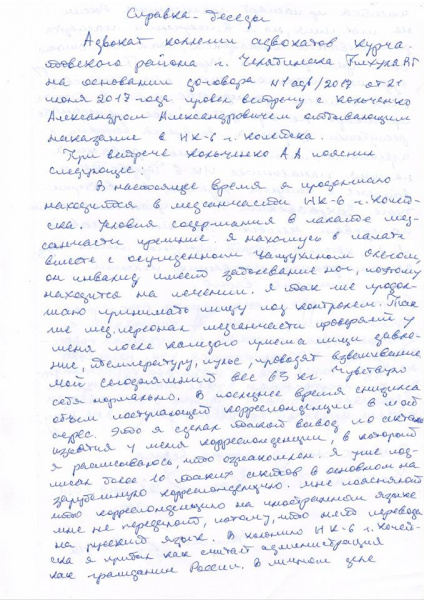 Справка-беседы
Адвокат коллегии адвокатов Курча-
товского района г. Челябинска
на основании договора №1 адв/2017 от 21
июня 2017 года провел встречу с Кольченко
Александром Александровичем отбывающим
наказание в ИК-6 г. Копейска.
При встрече Кольченко А А пояснил
следующее:
В настоящее время я продолжаю
находится в медсанчасти ИК-6 г. Копей-
ска. Условия содержания в палате мед-
санчасти прежние. Я нахожусь в палате
вместе с осужденным Олегом,
он инвалид имеет заболевание ног, поэтому
находится на лечении. Я так же продол-
жаю принимать пищу под контролем. Так
же мед. персонал медсанчасти проверяет у
меня после каждого приема пищи давле-
ние, температуру, пульс, проводят взвешивание
мой сегодняшний вес 63 кг. Чувствую
себя нормально. В последнее время снизился
объем поступающей корреспонденции в мой
адрес. Это я сделал такой вывод по актам
изъятия у меня корреспонденции, в которой
я расписываюсь, что ознакомлен. Я уже под-
писал более 10 таких актов в основном на
зарубежную корреспонденцию. Мне поясняют
что корреспонденцию на иностранном языке
мне не передают, потому, что нет перевода
на русский язык. В колонию ИК-6 г. Копей-
ска я прибыл как считает администрация
как гражданин России. В личном деле